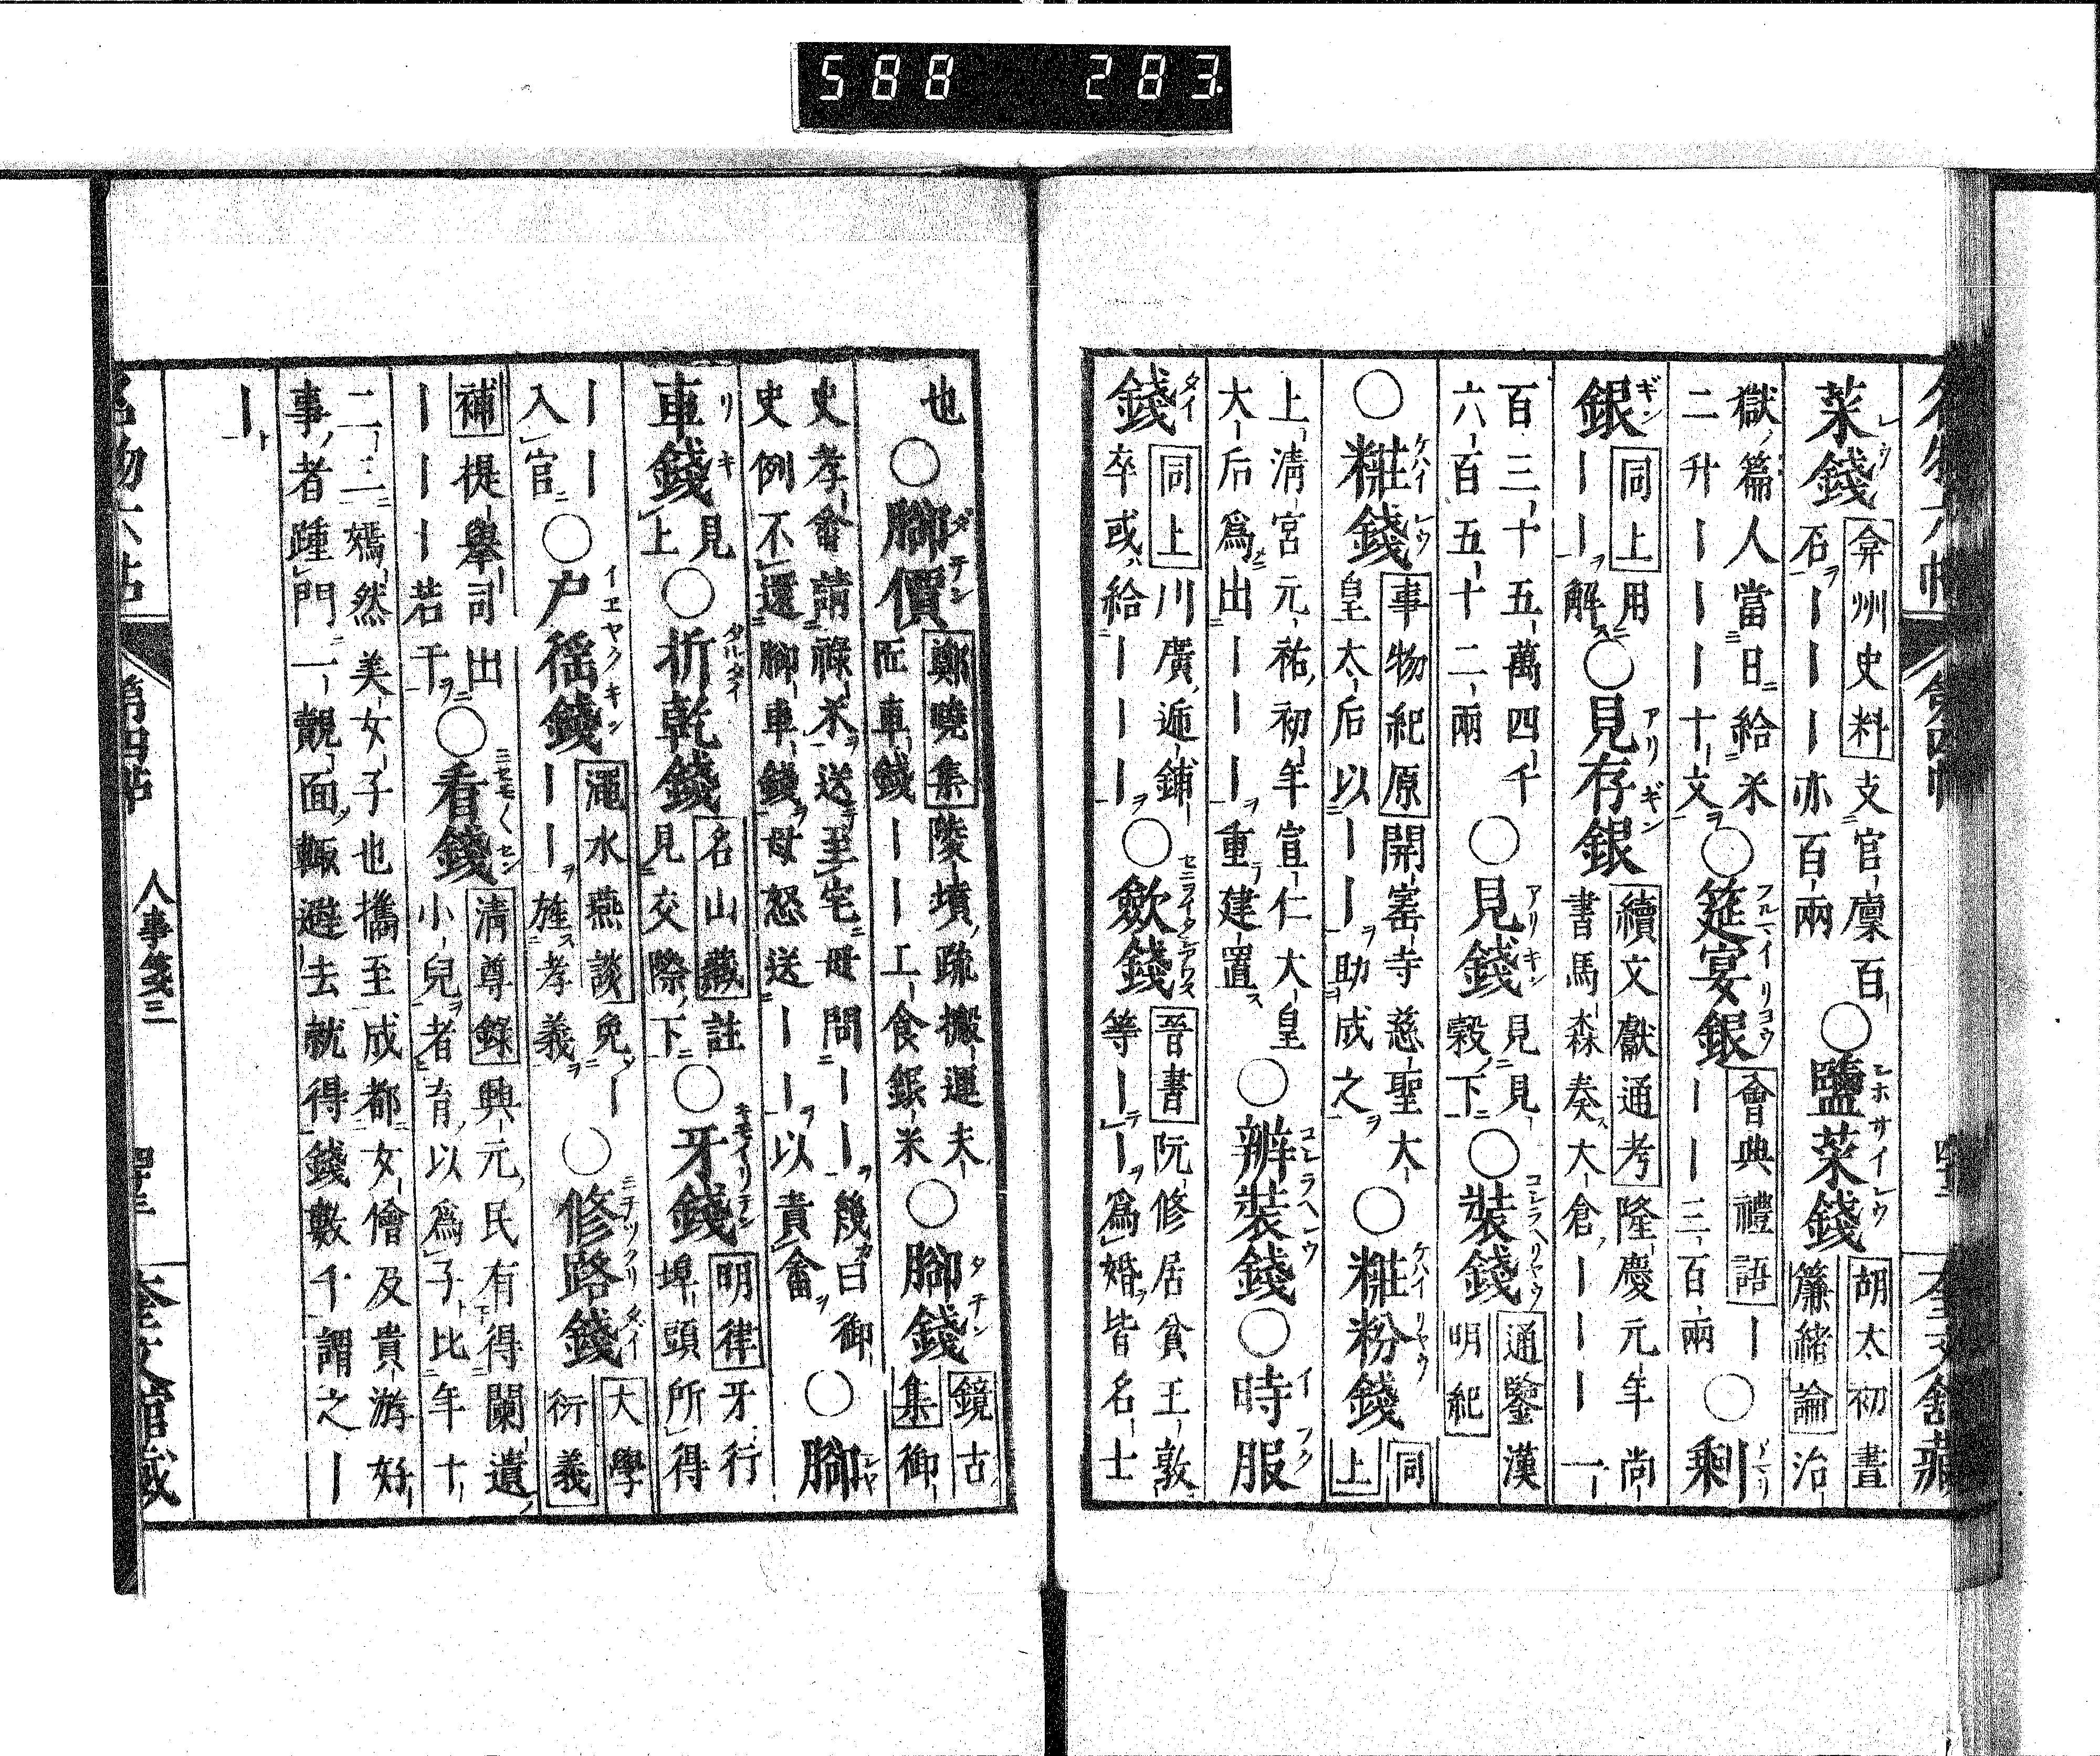 菜錢 弇州史料 支官廩百石｜｜｜亦百兩 ○鹽菜錢 胡太初晝簾緒論 治
獄篇人當日給米二升｜｜｜十文 ○筵宴銀 會典禮語 ｜｜｜三百兩 ○剰
銀 同上 用｜｜解 ○見存銀 續文獻通考 隆慶元年尚書馬森奏大倉｜｜｜一
百三十五萬四千六百五十二兩 ○見錢 見見穀下 ○裝錢 通鑒明紀 漢
○粧錢 事物紀原 開寚寺慈聖大皇太后以｜｜助成之 ○粧粉錢 同上
上清宮元祐初年宣仁大皇大后爲出｜｜｜重建置 ○辨裝錢 ○時服
錢 同上 川廣遞鋪卒或給｜｜｜ ○歛錢 晉書 阮修居貧王敦等｜｜爲婚皆名士
也 ○腳價 鄭曉集 陵墳疏搬運夫匠車錢｜｜工食銀米 ○腳錢 鏡古集 御
史孝畬請祿米送至宅母問｜｜幾曰御史例不還腳車錢母怒送｜｜以責畬 ○腳
車錢 見上 ○折乾錢 名山藏 註見交際下 ○牙錢 明律 牙行埠頭所得
｜｜｜｜入官 ○户徭錢 澠水燕談 免｜｜｜旌孝義 ○修路錢 大學衍義
補 提舉司出｜｜｜若干 ○看錢 清尊錄 興元民有得闌遺小兒者育以爲子比年十
二三嫣然美女子也攜至成都女儈及貴游好事者踵門一覿面輒避去就得錢數千謂之｜
｜
人事箋三